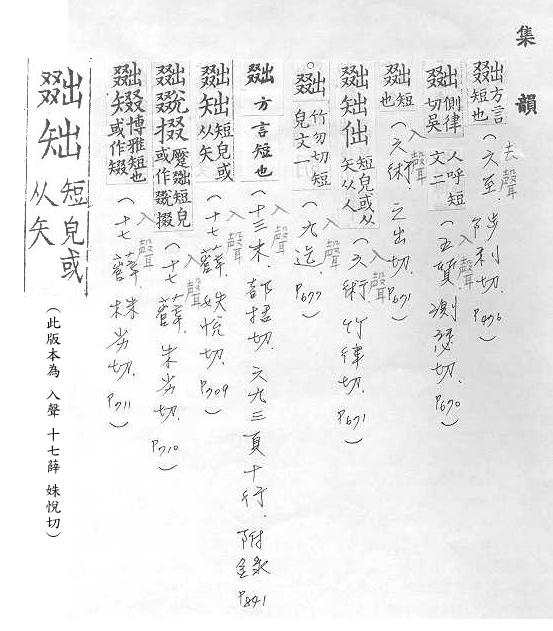 集韻
方言短也（六至．陟利切．P476）去聲
側律切吳人呼短文二（五質．測瑟切．P670）入聲
短也（六術．之出切．P671）入聲
䂐㑁短皃或从矢从人（六術．竹律切．P671）入聲
竹勿切短皃文一（八迄．P677）入聲
方言短也（十三末．都括切．六九三頁十行．附錄P841）入聲
䂐短皃或从矢（十七薛．姝悅切．P709）入聲
掇短皃或作掇（十七薛．朱劣切．P710）入聲
博雅短也或作（十七薛．株劣切．P711）入聲
䂐短皃或从矢
（此版本為 入聲 十七薛 姝悅切）